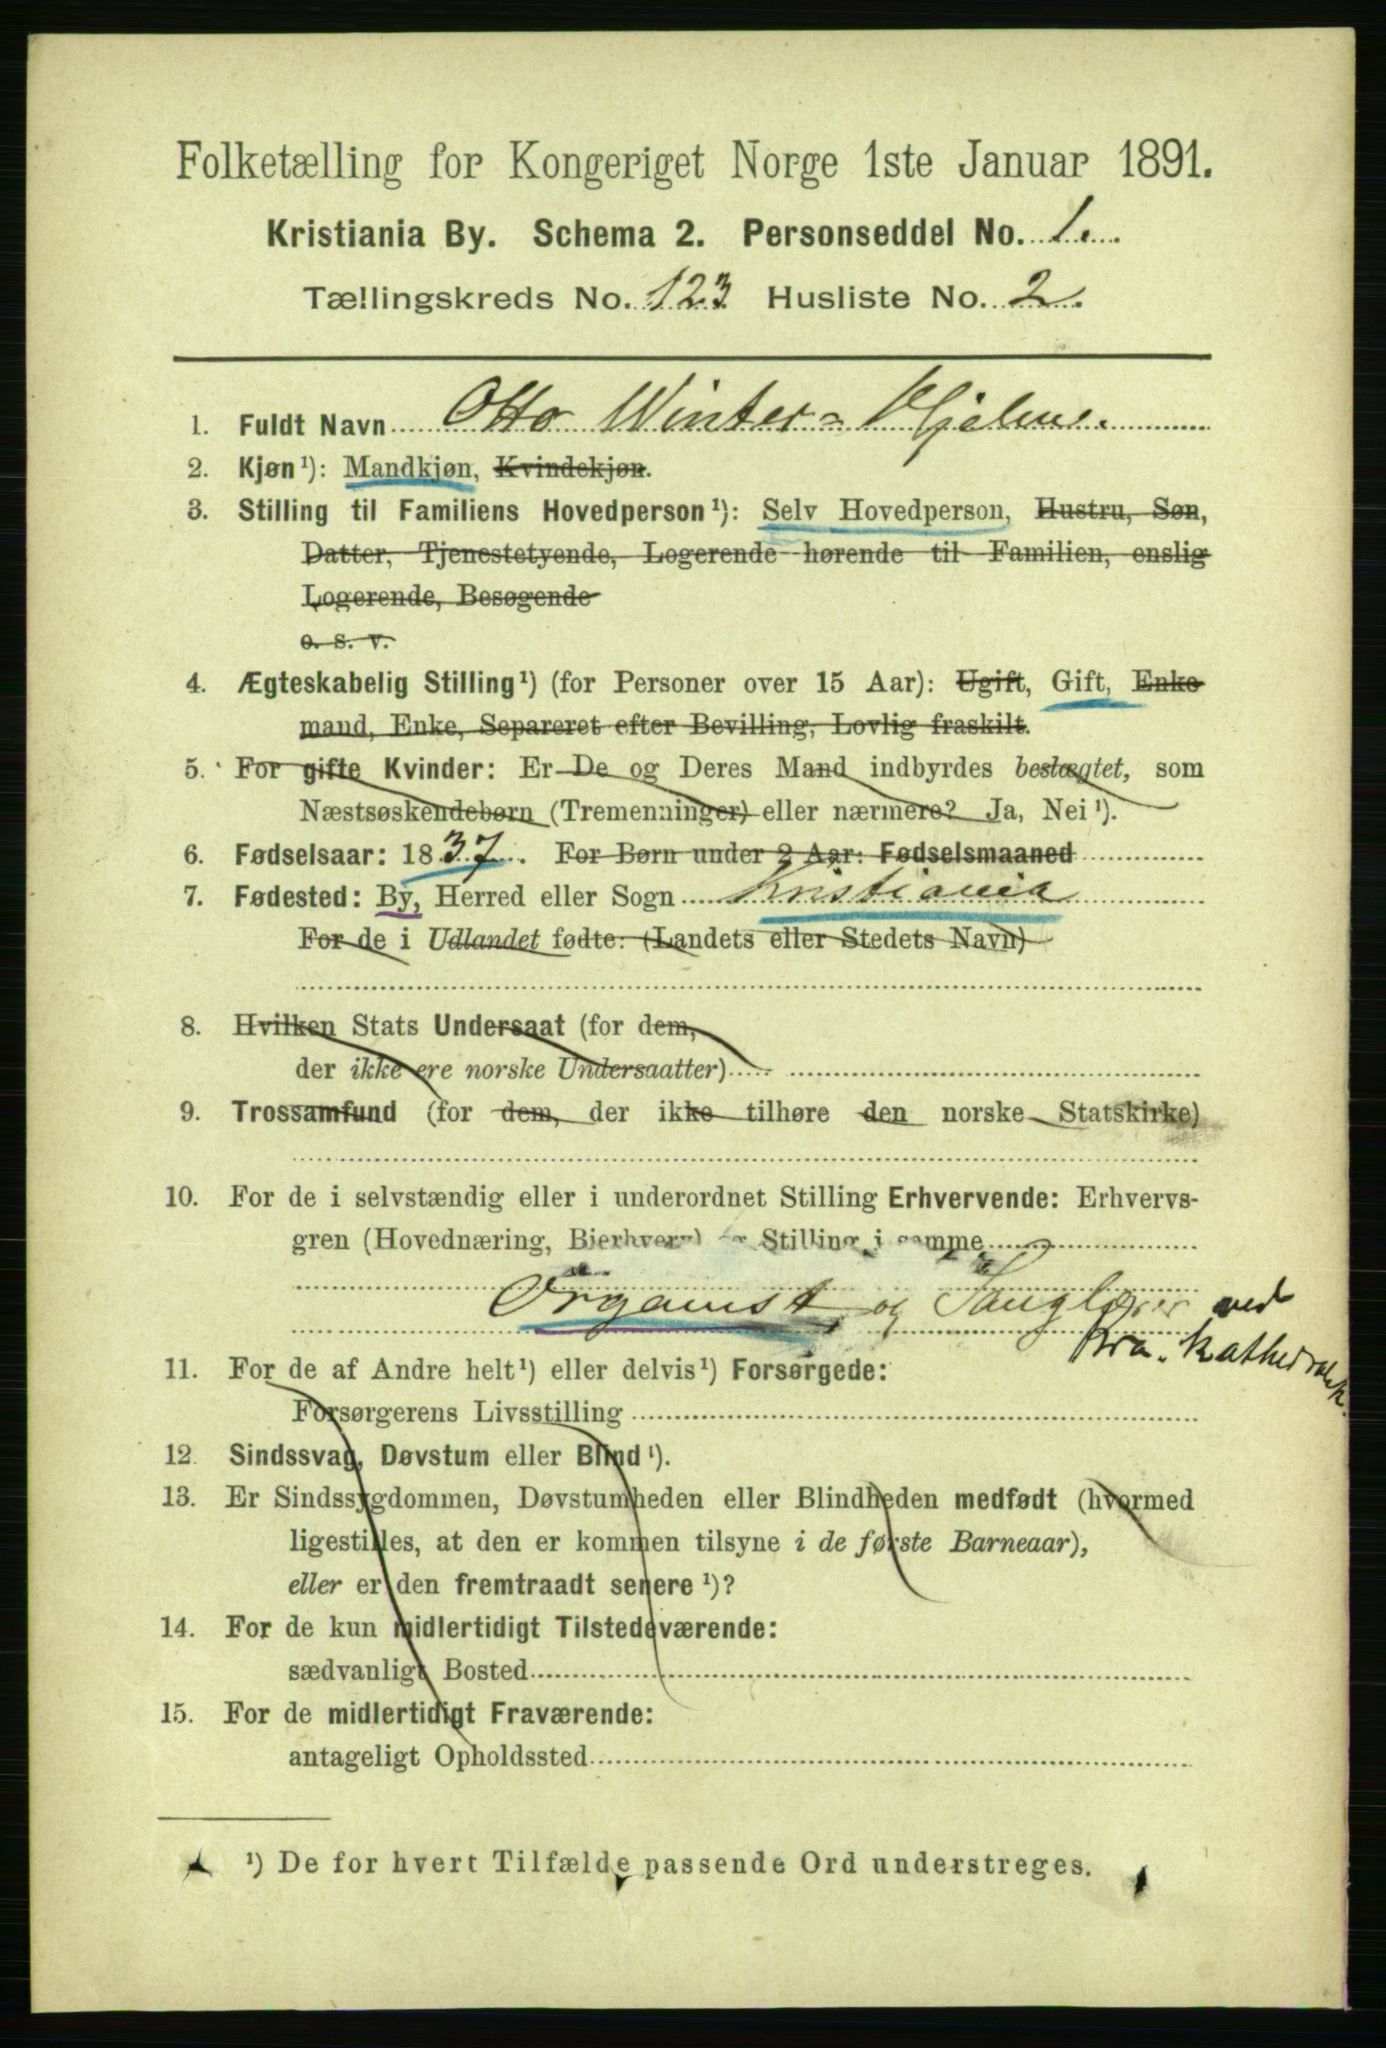 Folketælling for Kongeriget Norge 1ste Januar 1891.
Kristiania By. Schema 2. Personseddel No. 1.
Tællingskreds No. 123 Husliste No. 2.
1. Fuldt Navn Otto Winter=Hjelm.
2. Kjøn ¹): Mandkjøn, Kvindekjøn.
3. Stilling til Familiens Hovedperson ¹): Selv Hovedperson, Hustru, Søn,
Datter, Tjenestetyende, Logerende hørende til Familien, enslig
Logerende, Besøgende
o. s. v.
4. Ægteskabelig Stilling ¹) (for Personer over 15 Aar): Ugift, Gift, Enke-
mand, Enke, Separeret efter Bevilling, Lovlig fraskilt.
5. For gifte Kvinder: Er De og Deres Mand indbyrdes beslægtet, som
Næstsøskendebørn (Tremenninger) eller nærmere? Ja, Nei ¹).
6. Fødselsaar: 1837. For Børn under 2 Aar: Fødselsmaaned
7. Fødested: By, Herred eller Sogn Kristiania
For de i Udlandet fødte: (Landets eller Stedets Navn)
8. Hvilken Stats Undersaat (for dem,
der ikke ere norske Undersaatter)
9. Trossamfund (for dem, der ikke tilhøre den norske Statskirke)
10. For de i selvstændig eller i underordnet Stilling Erhvervende: Erhvervs-
gren (Hovednæring, Bierhverv) og Stilling i samme
Organist og Sanglærer ved
Kra. Kathedralsk.
11. For de af Andre helt ¹) eller delvis ¹) Forsørgede:
Forsørgerens Livsstilling
12. Sindssvag, Døvstum eller Blind ¹).
13. Er Sindssygdommen, Døvstumheden eller Blindheden medfødt (hvormed
ligestilles, at den er kommen tilsyne i de første Barneaar),
eller er den fremtraadt senere ¹)?
14. For de kun midlertidigt Tilstedeværende:
sædvanligt Bosted
15. For de midlertidigt Fraværende:
antageligt Opholdssted
¹) De for hvert Tilfælde passende Ord understreges.